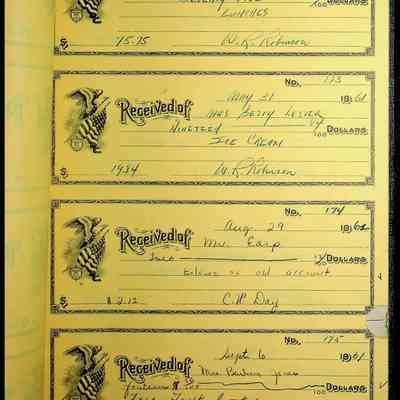 Seventy Five /100 DOLLARS
Lunches
$ 75.75 W. R. Robinson
No. 173
May 31 1961
Received of Mrs Betty Lester
Nineteen 84/100 DOLLARS
Ice Cream
19.84 W. R. Robinson
No. 174
Aug. 29 1961
Received of Mr. Earp
Two 12/100 DOLLARS
Balance on old account
$ 2.12 C. H. Day
No. 175
Sept. 6 1961
Received of Mrs. Jones
/100 DOLLARS